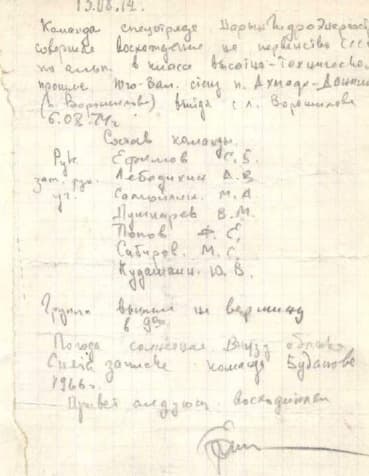 13.08.74.
Команда спецотряда НарынГидроЭнергост
совершил восхождение на первинство СССР
по альп. в класса высотно-технических
прошла Юго-Зап. стену п. Ахмади-Дониш
(п. Ворошилов) выйдя с л. Ворошилова
6.08.74г.
Состав команды.
Рук. Ефимов С. Б.
зам. рук. Лебедихин А. В.
уч. Самойлин М. А
Пушкарев В. М.
Попов Ф. С.
Сабиров. М. С.
Кудашкин Ю. В.
Группа вышла на вершину
в 9⁰⁰
Погода солнечная Внизу облака
Сняли записку команды Буданова
1966г.
Привет следующ восходителям